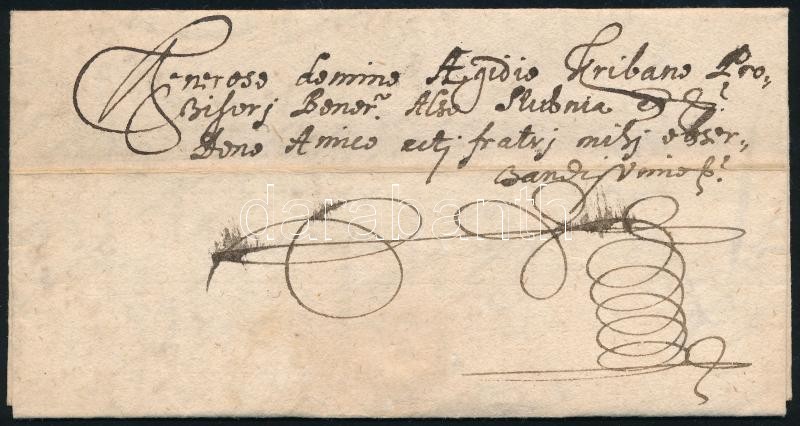 Generose domine Ægidio Kribano Pro-
visorj Bener. Also Slubnia
Dono Amico actj fratrj mihj obser-
vandissimo
darabanth